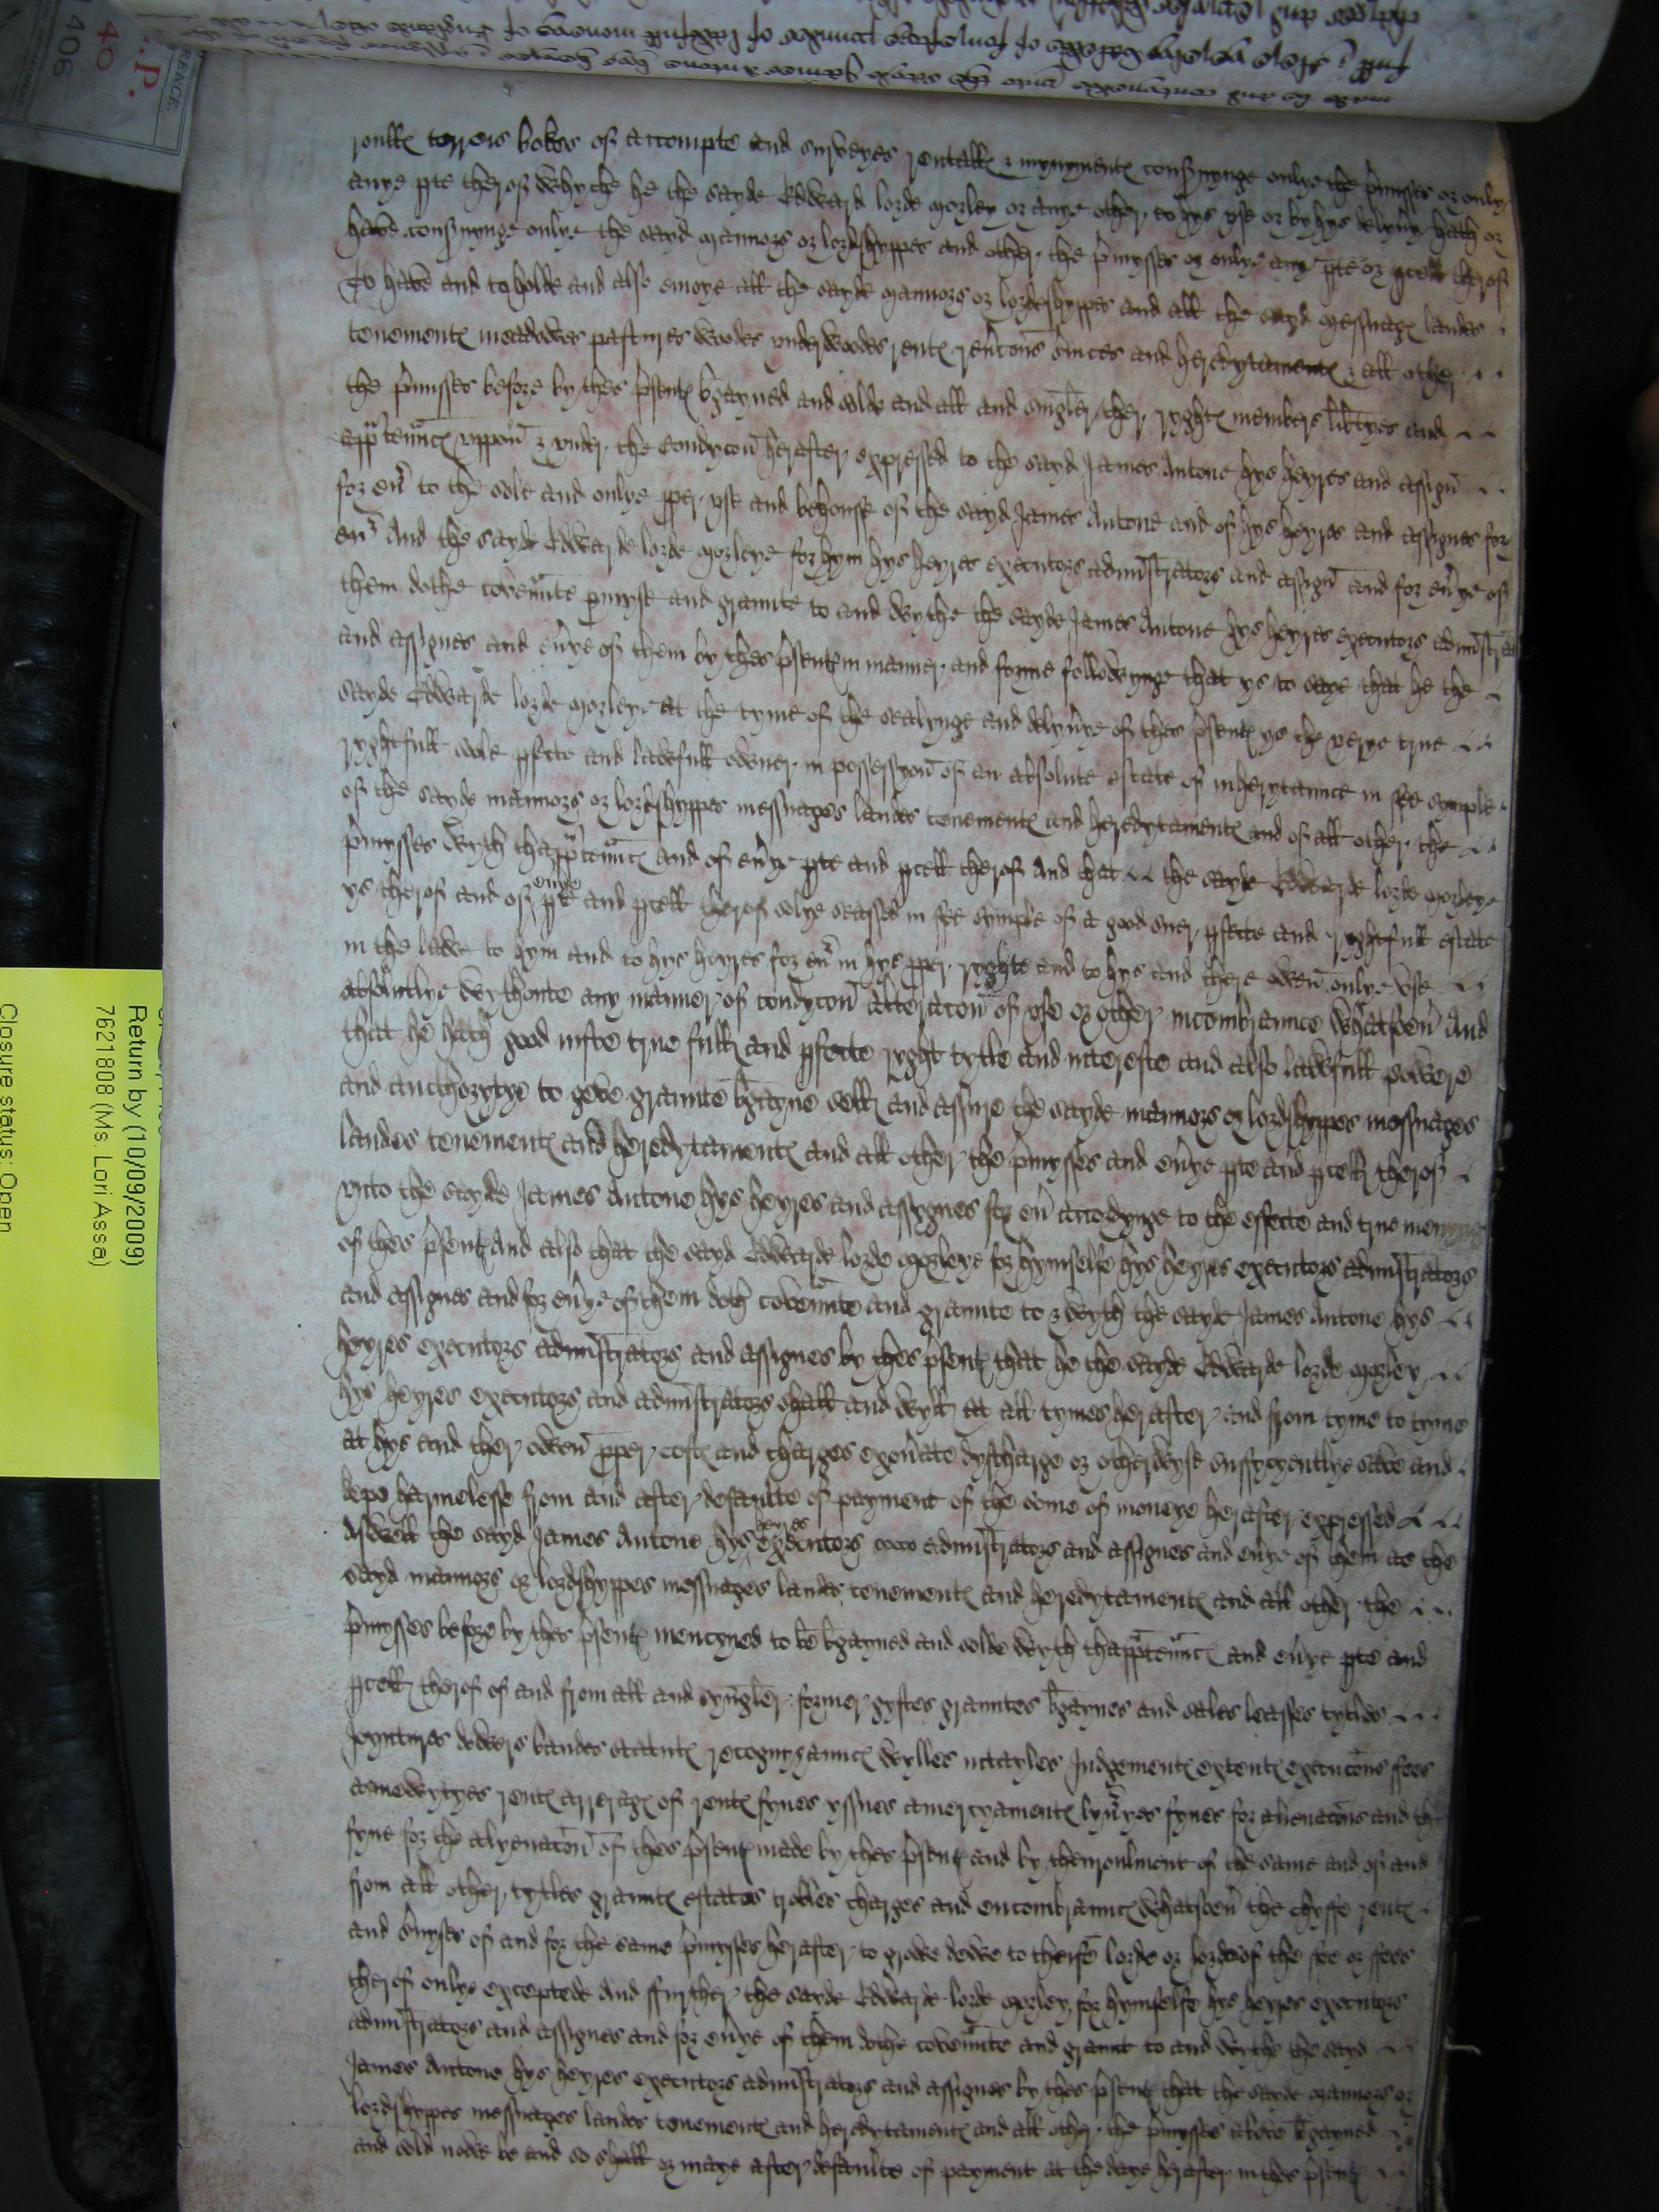 RENCE.
C.P.
40
1406
Return by (10/09/2009)
7621808 (Ms. Lori Assa)
Closure status: Open
rentall[es] terrors bokes of accompte and surveyes rentall[es] & mynyment[es] conc[er]nynge onlye the p[re]misses or onlye
anye p[ar]te therof whyche he the sayde Edward lorde Morley or anye other to hys vse or by hys delyu[er]y hath or
have conc[er]nynge onlye the sayd Mannors or lordshyppes and other the p[re]mysses or onlye any p[ar]te or p[ar]cell therof
To have and to holde and also enioye all the sayde Mannors or lordeshyppes and all the sayd Messuag[es] landes
tenement[es] meadowes pastures woodes vnderwoodes rent[es] reu[er]cons s[er]uices and heredytament[es] & all other
the p[re]misses before by thes p[re]sent[es] b[ar]gayned and solde and all and singler ther ryght[es] members lib[er]tyes and
app[ur]ten[a]nc[es] vppon & vnder the Condycon herafter expressed to the sayd James Antone hys heyres and assign[es]
for eu[er] to the sole and onlye p[ro]per vse and behouse of the sayd James Antone and of hys heyres and assignes for
eu[er] And the sayde Edwarde lorde Morleye for hym hys heyres executors administrators and assign[es] and for eu[er]ye of
them dothe coven[a]nte p[ro]myse and graunte to and wythe the sayde James Antone hys heyres executors administrat
and assignes and eu[er]ye of them by thes p[re]sent[es] in manner and forme followynge that ys to saye that he the
sayde Edwarde lorde Morleye at the tyme of the sealynge and delyu[er]ye of thes p[re]sent[es] ys the verye true
ryghtfull sole p[er]fecte and lawfull owener in possessyon of an absolute estate of inherytaunce in fee symple
of the sayde mannors or lordeshyppes messuages landes tenement[es] and heredytament[es] and of all other the
p[re]mysses wyth thapp[ur]ten[a]nc[es] and of eu[er]ye p[ar]te and p[ar]cell therof And that the sayde Edwarde lorde Morleye
ys therof and of eu[er]ye p[ar]te and p[ar]cell therof solye seassed in fee symple of a good suer p[er]fecte and ryghtfull estate
in the lawe to hym and to hys heyres for eu[er] in hys p[ro]per ryghte and to hys and there owen onlye vse
absolutlye wythoute any manner of condycon alteracon of vse or other incombraunce whatsoeu[er] And
that he hath good iuste true full and p[er]fecte ryght tytle and intereste and also lawfull powere
and aucthorytye to geve graunte b[ar]gayne sell and assure the sayde mannors or lordshyppes messuages
landes tenement[es] and heredytament[es] and all other the p[re]mysses and eu[er]ye p[ar]te and p[ar]cell therof
vnto the sayde James Antone hys heyres and assygnes for eu[er] accordynge to the effecte and true menynge
of thes p[re]sent[es] And also that the sayd Edwarde lorde Morleye for hymselfe hys heyres executors administrators
and assignes and for eu[er]ye of them doth coven[a]nte and graunte to & wyth the sayde James Antone hys
heyres executors administrators and assignes by thes p[re]sent[es] that he the sayde Edwarde lorde Morley
hys heyres executors and administrators shall and wyll at all tymes herafter and from tyme to tyme
at hys and ther owen p[ro]per cost[es] and charges exon[er]ate dyscharge or otherwyse suffycyentlye save and
kepe harmelesse from and after defaulte of payment of the some of moneye herafter expressed
Aswell the sayd James Antone hys heyres executors administrators and assignes and eu[er]ye of them as the
sayd mannors or lordshyppes messuages landes tenement[es] and heredytament[es] and all other the
p[re]mysses before by thes p[re]sent[es] mencyned to be b[ar]gayned and solde wyth thapp[ur]ten[a]nc[es] and eu[er]ye p[ar]te and
p[ar]cell therof of and from all and syngler former gyftes grauntes b[ar]gaynes and sales leasses tytles
Joyntures dowers bandes statut[es] recognyzaunc[es] wylles intayles Judgement[es] extent[es] execucons ffees
annewytyes rent[es] arrerag[es] of rent[es] fynes yssues amercyament[es] lyu[er]yes fynes for alienacons and the
fyne for the alyenacon of thes p[re]sent[es] made by thes p[re]sent[es] and by thenrolment of the same and of and
from all other tytles graunt[es] estates trobles charges and encombraunc[es] whatsoeu[er] the chyffe rent[es]
and s[er]uyses of and for the same p[re]mysses herafter to growe dewe to the chife lorde or lordes of the fee or ffees
therof onlye excepted And ffurther the sayde Edwarde lorde Morley for hymselfe hys heyres executors
administrators and assignes and for eu[er]ye of them dothe coven[a]nte and graunt to and wythe the sayd
James Antone hys heyres executors administrators and assignes by thes p[re]sent[es] that the sayde Mannors or
lordshyppes messuages landes tenement[es] and heredytament[es] and all other the p[re]mysses above b[ar]gayned
and sold nowe be and so shall or maye after defaulte of payment at the daye herafter in thes p[re]sent[es]